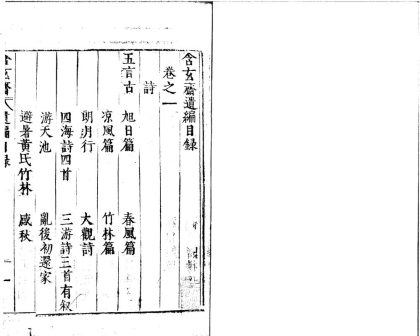 含玄齋遺編目錄
卷之一
詩
五言古
旭日篇 春風篇
凉風篇 竹林篇
朗月行 大觀詩
四海詩四首 三游詩三首有叙
游天池 亂後初還家
避暑黃氏竹林 感秋
含玄齋 遺編目錄 一